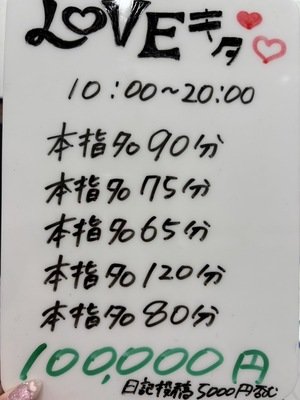 LOVEキタ
10:00～20:00
本指名90分
本指名75分
本指名65分
本指名120分
本指名80分
100,000円
日記投稿5000円含む